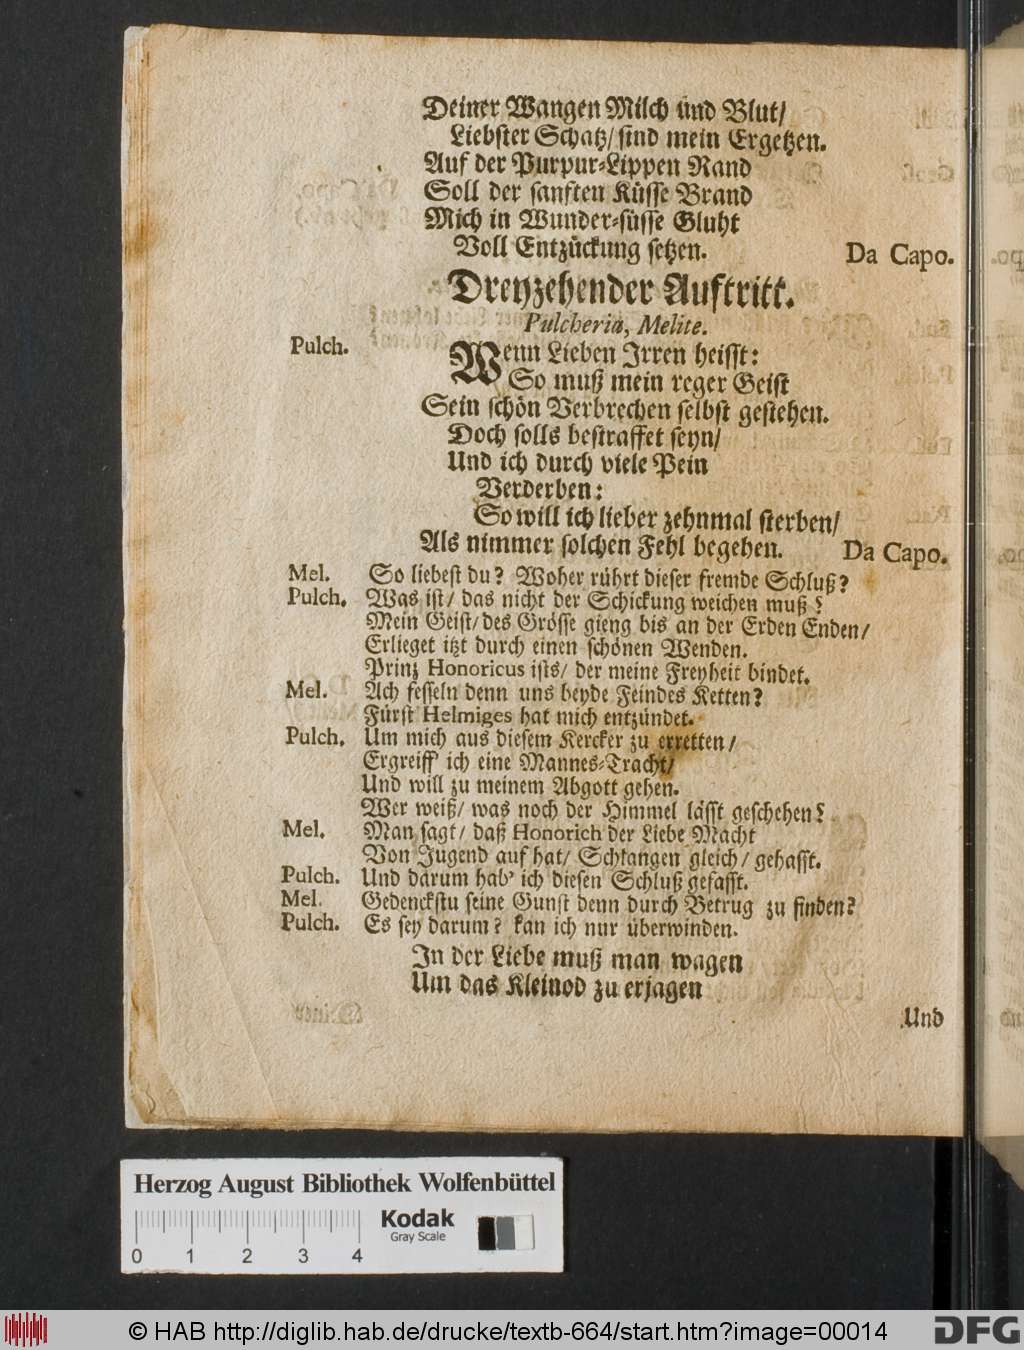 Deiner Wangen Milch und Blut/
Liebster Schatz/ sind mein Ergetzen.
Auf der Purpur-Lippen Rand
Soll der sanften Küsse Brand
Mich in Wunder-süsse Gluht
Voll Entzückung setzen. Da Capo.
Dreyzehender Auftritt.
Pulcheria, Melite.
Pulch. Wenn Lieben Irren heisst:
So muß mein reger Geist
Sein schön Verbrechen selbst gestehen.
Doch solls bestraffet seyn/
Und ich durch viele Pein
Verderben:
So will ich lieber zehnmal sterben/
Als nimmer solchen Fehl begehen. Da Capo.
Mel. So liebest du? Woher rührt dieser fremde Schluß?
Pulch. Was ist/ das nicht der Schickung weichen muß?
Mein Geist/ des Grösse gieng bis an der Erden Enden/
Erlieget itzt durch einen schönen Wenden.
Prinz Honoricus ists/ der meine Freyheit bindet.
Mel. Ach fesseln denn uns beyde Feindes Ketten?
Fürst Helmiges hat mich entzündet.
Pulch. Um mich aus diesem Kercker zu erretten/
Ergreiff' ich eine Mannes-Tracht/
Und will zu meinem Abgott gehen.
Wer weiß/ was noch der Himmel lässt geschehen?
Mel. Man sagt/ daß Honorich der Liebe Macht
Von Jugend auf hat/ Schlangen gleich/ gehasst.
Pulch. Und darum hab' ich diesen Schluß gefasst.
Mel. Gedenckstu seine Gunst denn durch Betrug zu finden?
Pulch. Es sey darum? kan ich nur überwinden.
In der Liebe muß man wagen
Um das Kleinod zu erjagen
Und
Herzog August Bibliothek Wolfenbüttel
0 1 2 3 4
Kodak
Gray Scale
© HAB http://diglib.hab.de/drucke/textb-664/start.htm?image=00014
DFG